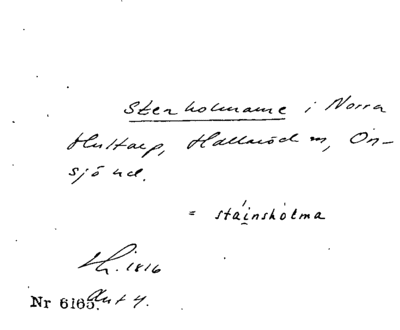 Stenholmarne i Norra
Hultarp, Hallaröd sn, On-
sjö hd.
= stáinshòlma
1816
Nr 6165.